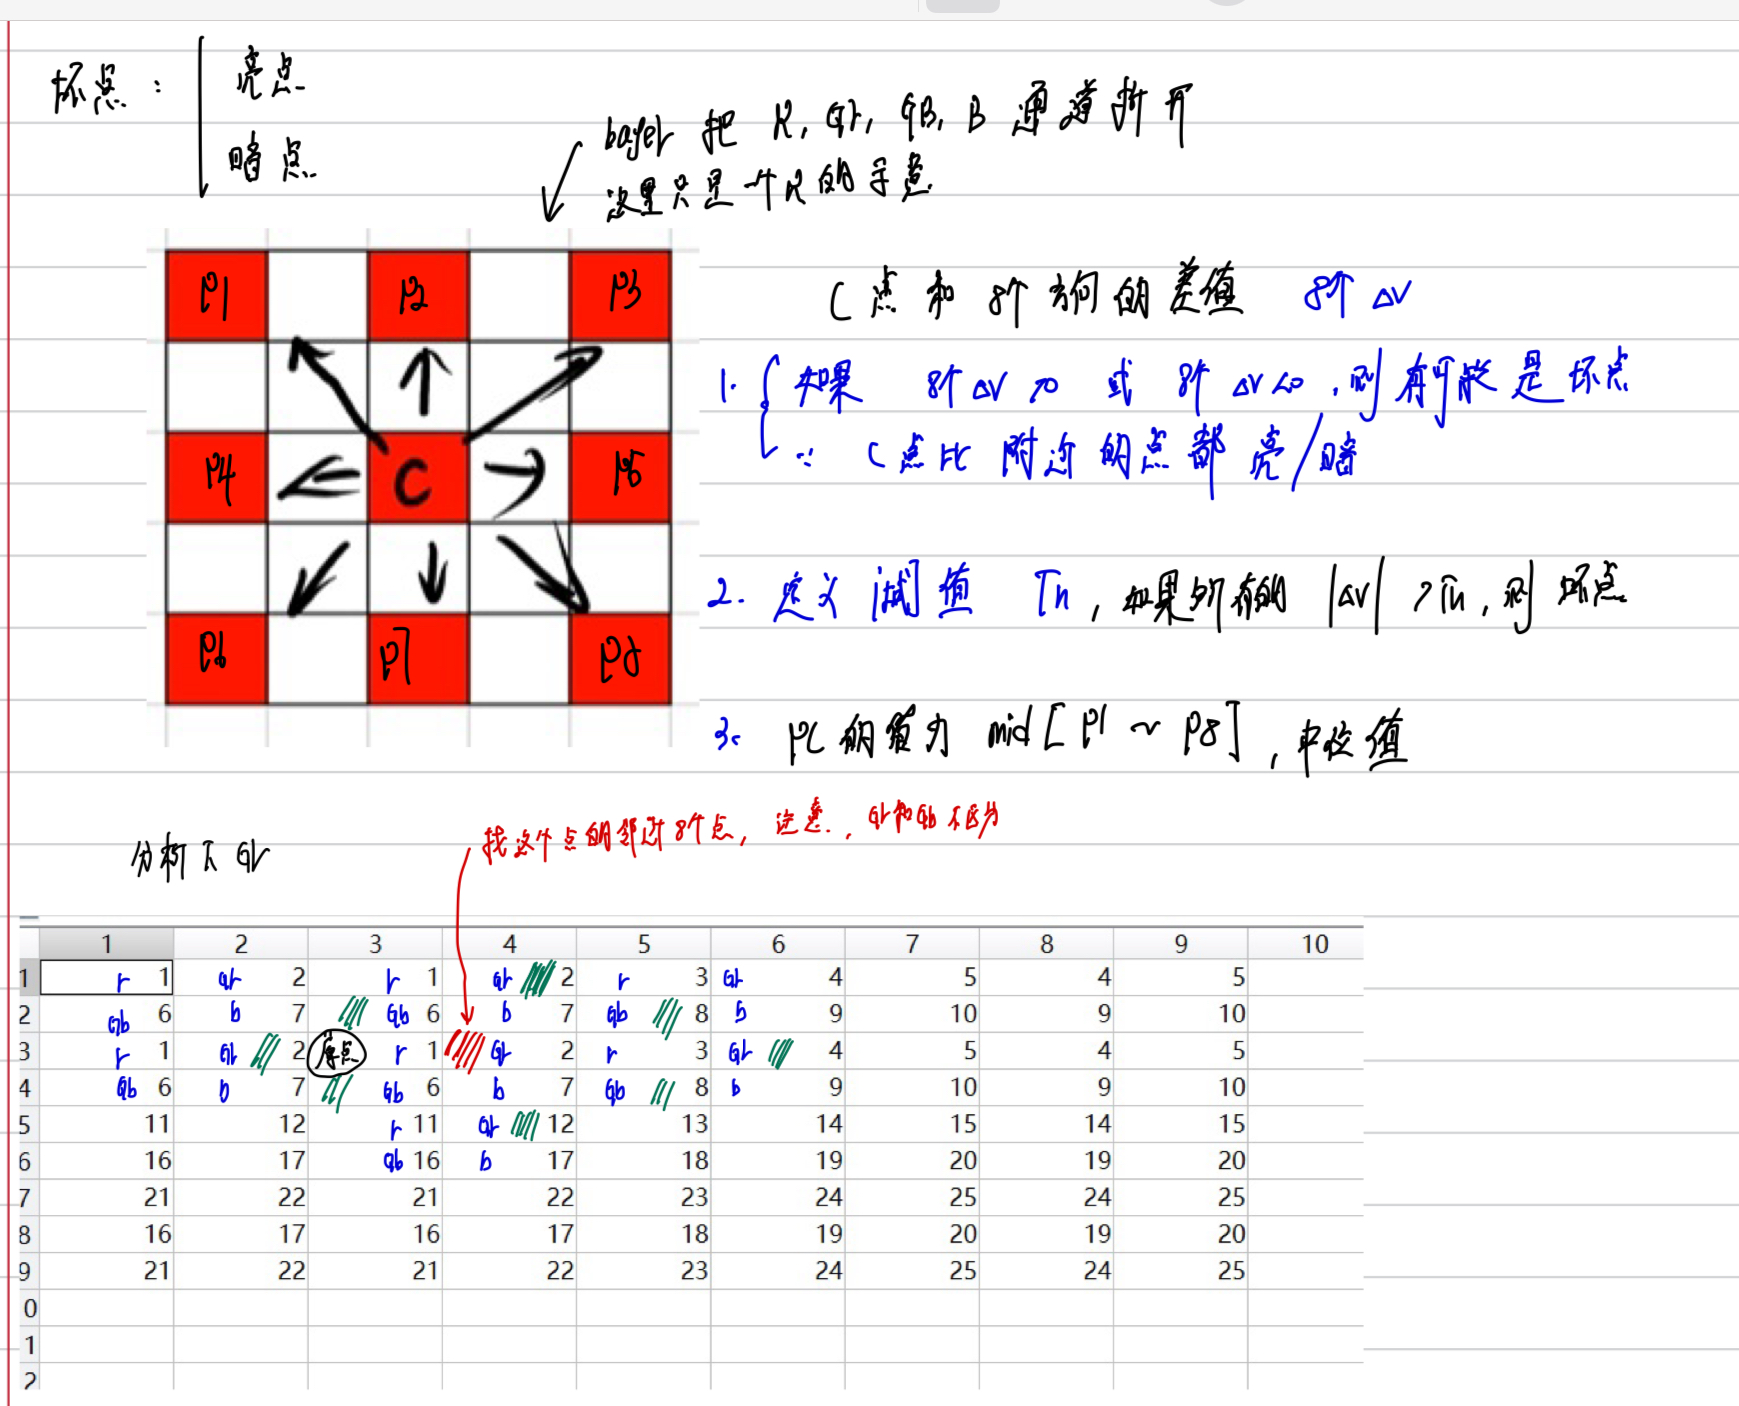 坏点: 亮点
暗点
bayer 把 R, Gr, GB, B 通道拆开
这里只是一个R的示意
P1 P2 P3
P4 C P5
P6 P7 P8
C点和 8个方向的差值 8个 ΔV
1. 如果 8个 ΔV >0 或 8个 ΔV <0, 则有可能是坏点
∵ C点比附近的点都亮/暗
2. 定义阈值 Th, 如果所有的 |ΔV| > Th, 则坏点
3. PC的值为 mid [P1 ~ P8], 中位值
找这个点的邻近8个点, 注意, Gr和Gb不区分
分析下 Gr
1 2 3 4 5 6 7 8 9 10
1 r 1 Gr 2 r 1 Gr 2 r 3 Gr 4 5 4 5
2 Gb 6 b 7 Gb 6 b 7 Gb 8 b 9 10 9 10
3 r 1 Gr 2 原点 r 1 Gr 2 r 3 Gr 4 5 4 5
4 Gb 6 b 7 Gb 6 b 7 Gb 8 b 9 10 9 10
5 11 12 r 11 Gr 12 13 14 15 14 15
6 16 17 Gb 16 b 17 18 19 20 19 20
7 21 22 21 22 23 24 25 24 25
8 16 17 16 17 18 19 20 19 20
9 21 22 21 22 23 24 25 24 25
0
1
2